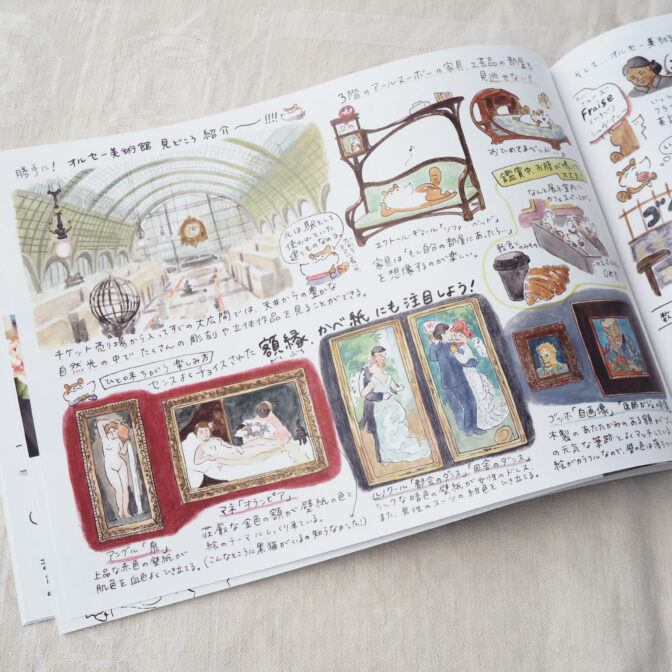 勝手に! オルセー美術館 見どころ 紹介〜!!!!
元は駅として
使われていた
建物なのよ
チケット売り場から入ってすぐの大広間では、天井からの豊かな
自然光の中でたくさんの彫刻や立体作品を見ることができる。
3階のアールヌーボーの家具、工芸品の部屋も
見逃せない!!
エクトール・ギマール「ソファ・ベッド」
家具は「もし自分の部屋にあったら…」
を想像するのが楽しい。
おひめさまべっど
鑑賞中、お腹が
なんと展示室内に
軽食のみもの
OK!
ひと味ちがう楽しみ方
センスよくチョイスされた 額縁、かべ紙 にも注目しよう!
がくぶち
アングル「泉」
上品な赤色の壁紙が
肌色を血色よくひき立てる。
マネ「オランピア」
荘厳な金色の額が壁紙の色と
絵のテーマにしっくり来ている。
(こんなところに黒猫がいるの知らなかった!)
ルノワール「都会のダンス」「田舎のダンス」
シックな暗色の壁紙が女性のドレス、
また、男性のスーツの紺色をひき立てる。
ゴッホ「自画像」「医師ガシェの
木製のあたたかみのある額が
の元気な筆跡とよくマッチ
絵がカラフルなので、壁の色は
そして… オルセー美術館
Fraise